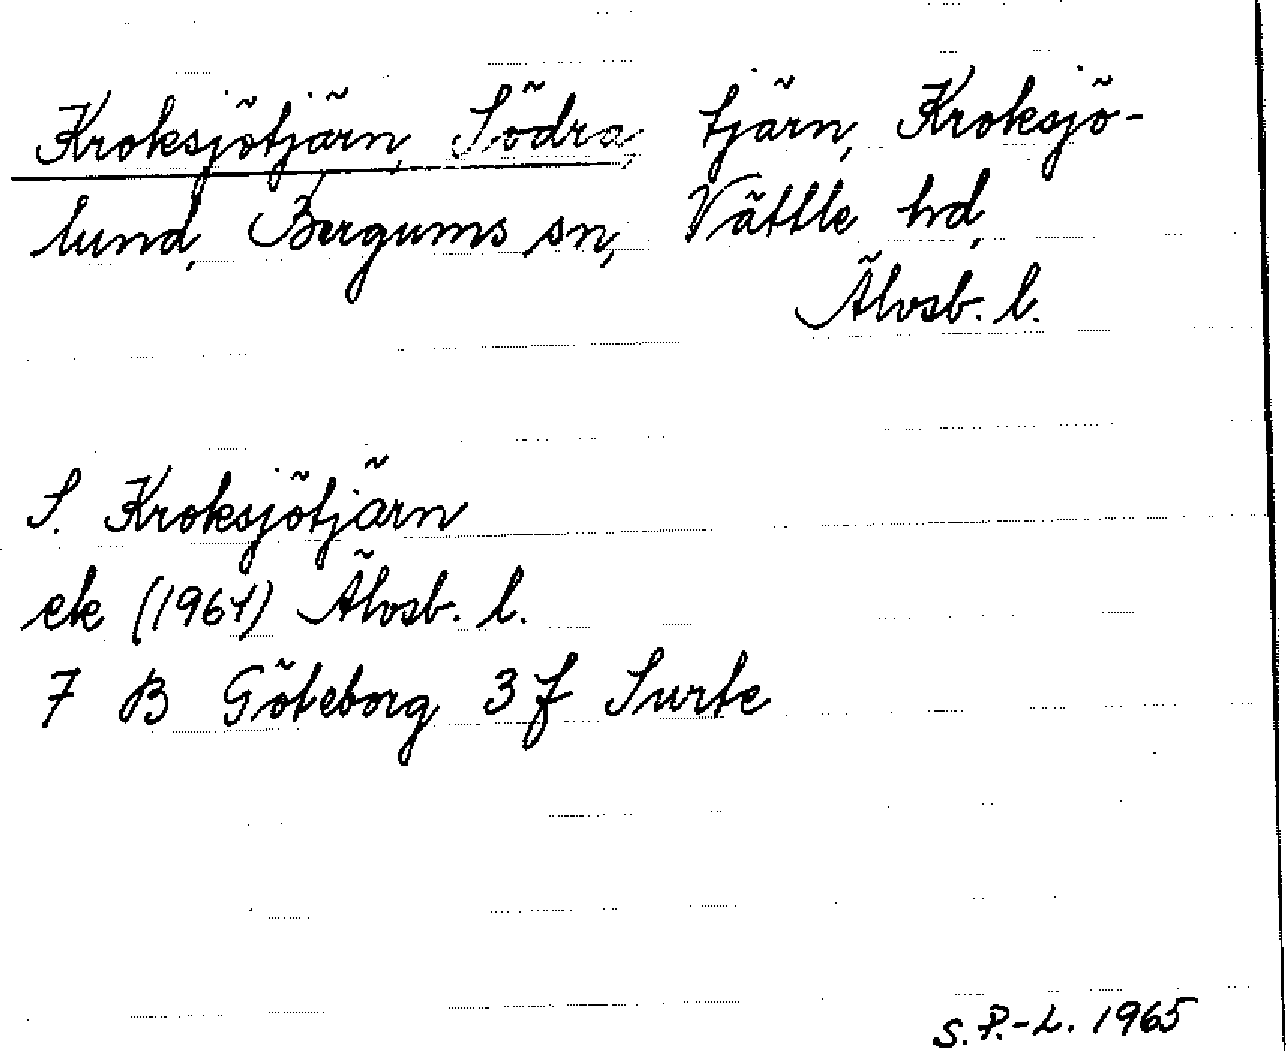 Kroksjötjärn, Södra, tjärn, Kroksjö-
lund, Bergums sn, Vättle hd,
Älvsb. l.
S. Kroksjötjärn
ek (1961) Älvsb. l.
7 B Göteborg 3 f Surte
S. P.-L. 1965